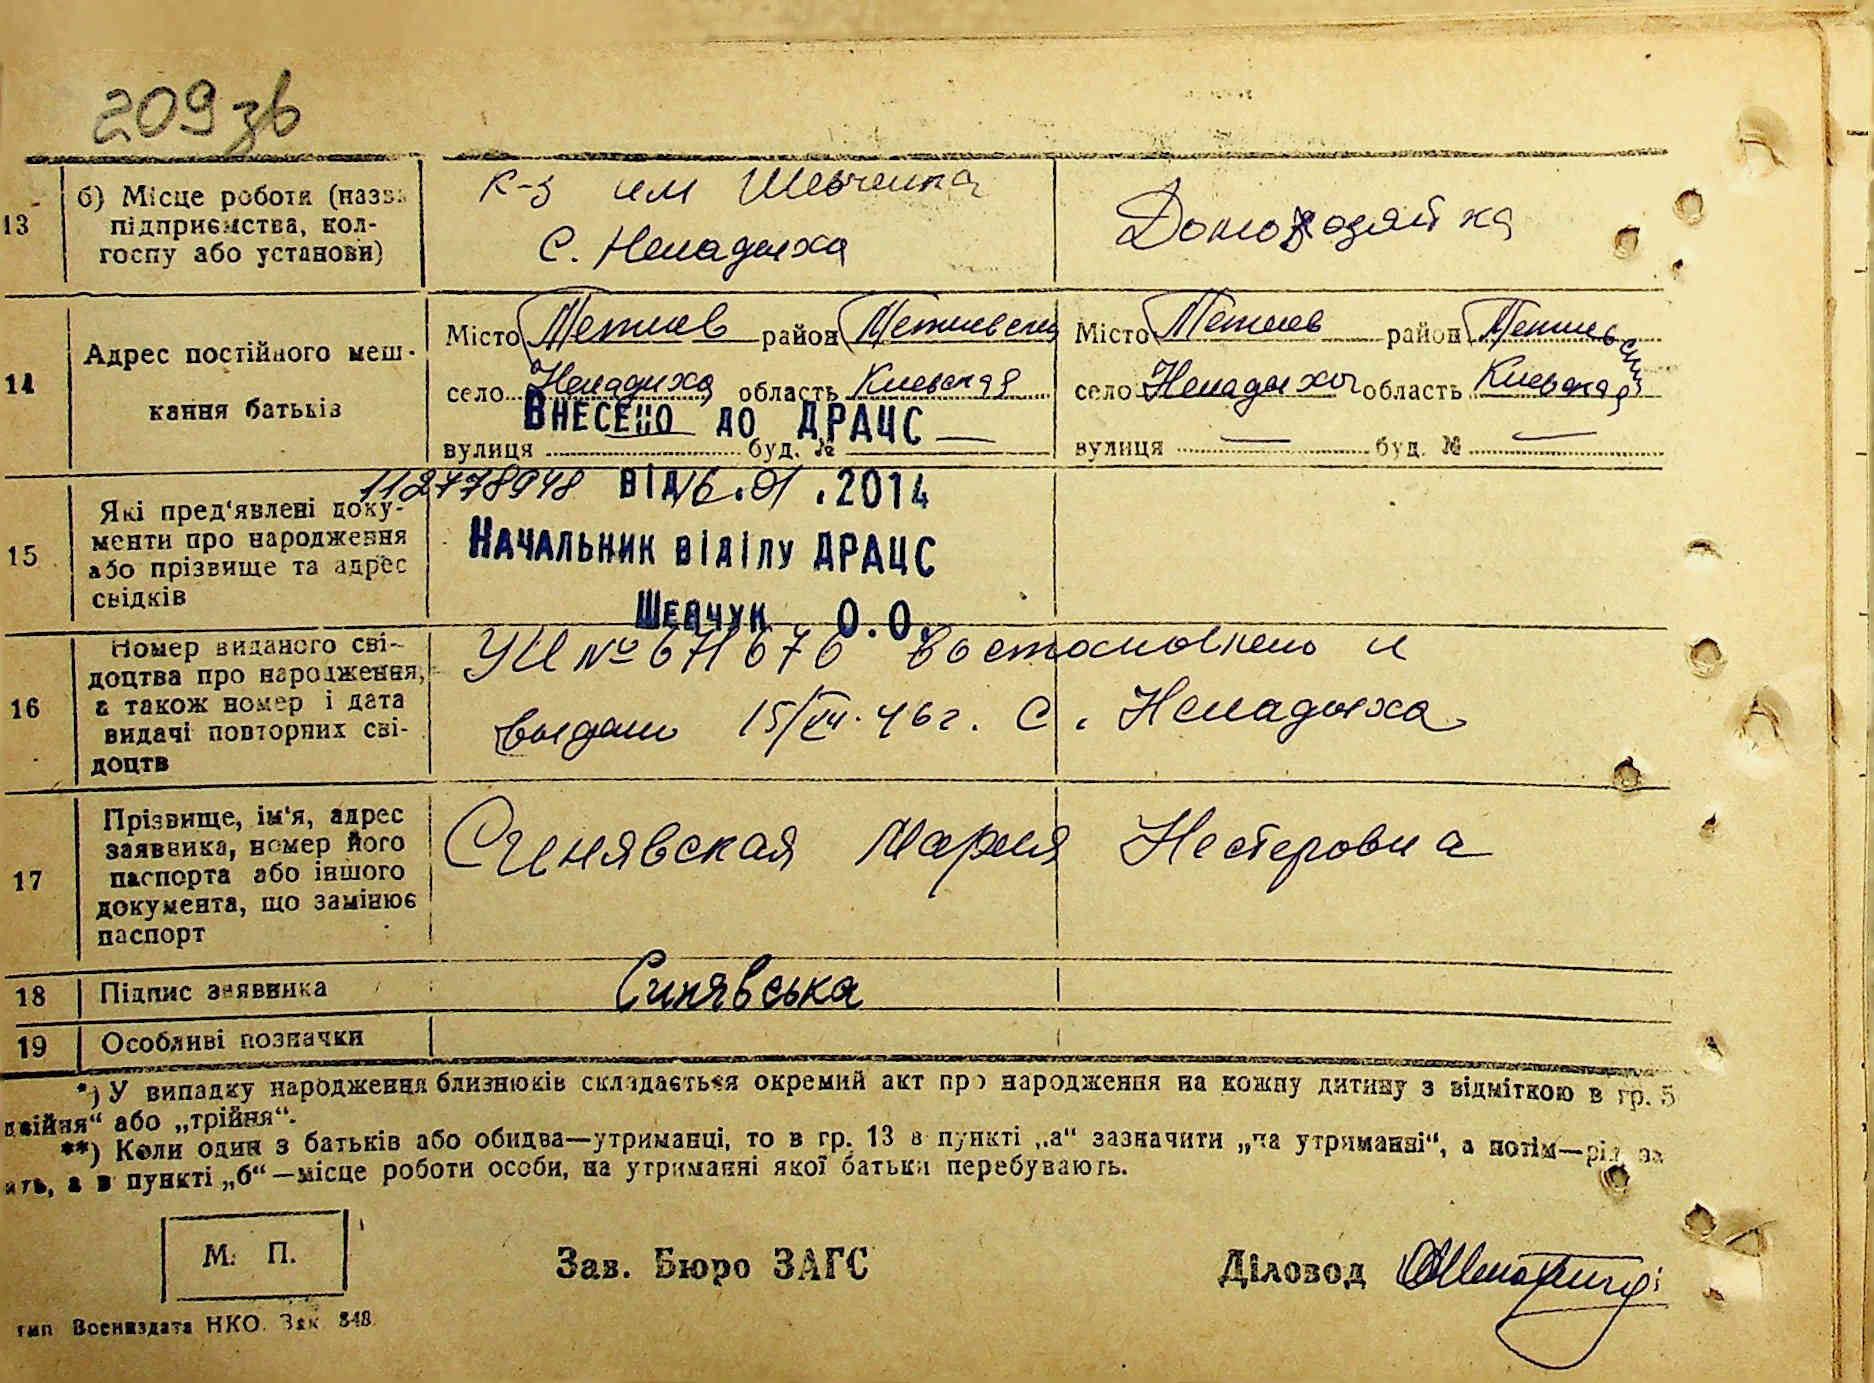 209 зв
13 б) Місце роботи (назва підприємства, колгоспу або установи)
к-з им Шевченка
с. Ненадыха
Домохозяйка
14 Адрес постійного мешкання батьків
Місто Тетиев район Тетиевский
село Ненадыха область Киевская
вулиця — буд. № —
Місто Тетиев район Тетиевский
село Ненадыха область Киевская
вулиця — буд. № —
Внесено до ДРАЦС
112778948 від 16.01.2014
Начальник відділу ДРАЦС
Шевчук О.О.
15 Які пред'явлені документи про народження або прізвище та адрес свідків
16 Номер виданого свідоцтва про народження, а також номер і дата видачі повторних свідоцтв
УИ № 671676 Восстановлено и
выдано 15/VII.46г. с. Ненадыха
17 Прізвище, ім'я, адрес заявника, номер його паспорта або іншого документа, що замінює паспорт
Синявская Мария Нестеровна
18 Підпис заявника
Синявська
19 Особливі позначки
*) У випадку народження близнюків складається окремий акт про народження на кожну дитину з відміткою в гр. 5
двійня“ або „трійня“.
**) Коли один з батьків або обидва—утриманці, то в гр. 13 в пункті „а“ зазначити „на утриманні“, а потім—рід за
ить, а в пункті „б“—місце роботи особи, на утриманні якої батьки перебувають.
М. П.
Зав. Бюро ЗАГС
Діловод
тип Воениздата НКО. Зак. 848.